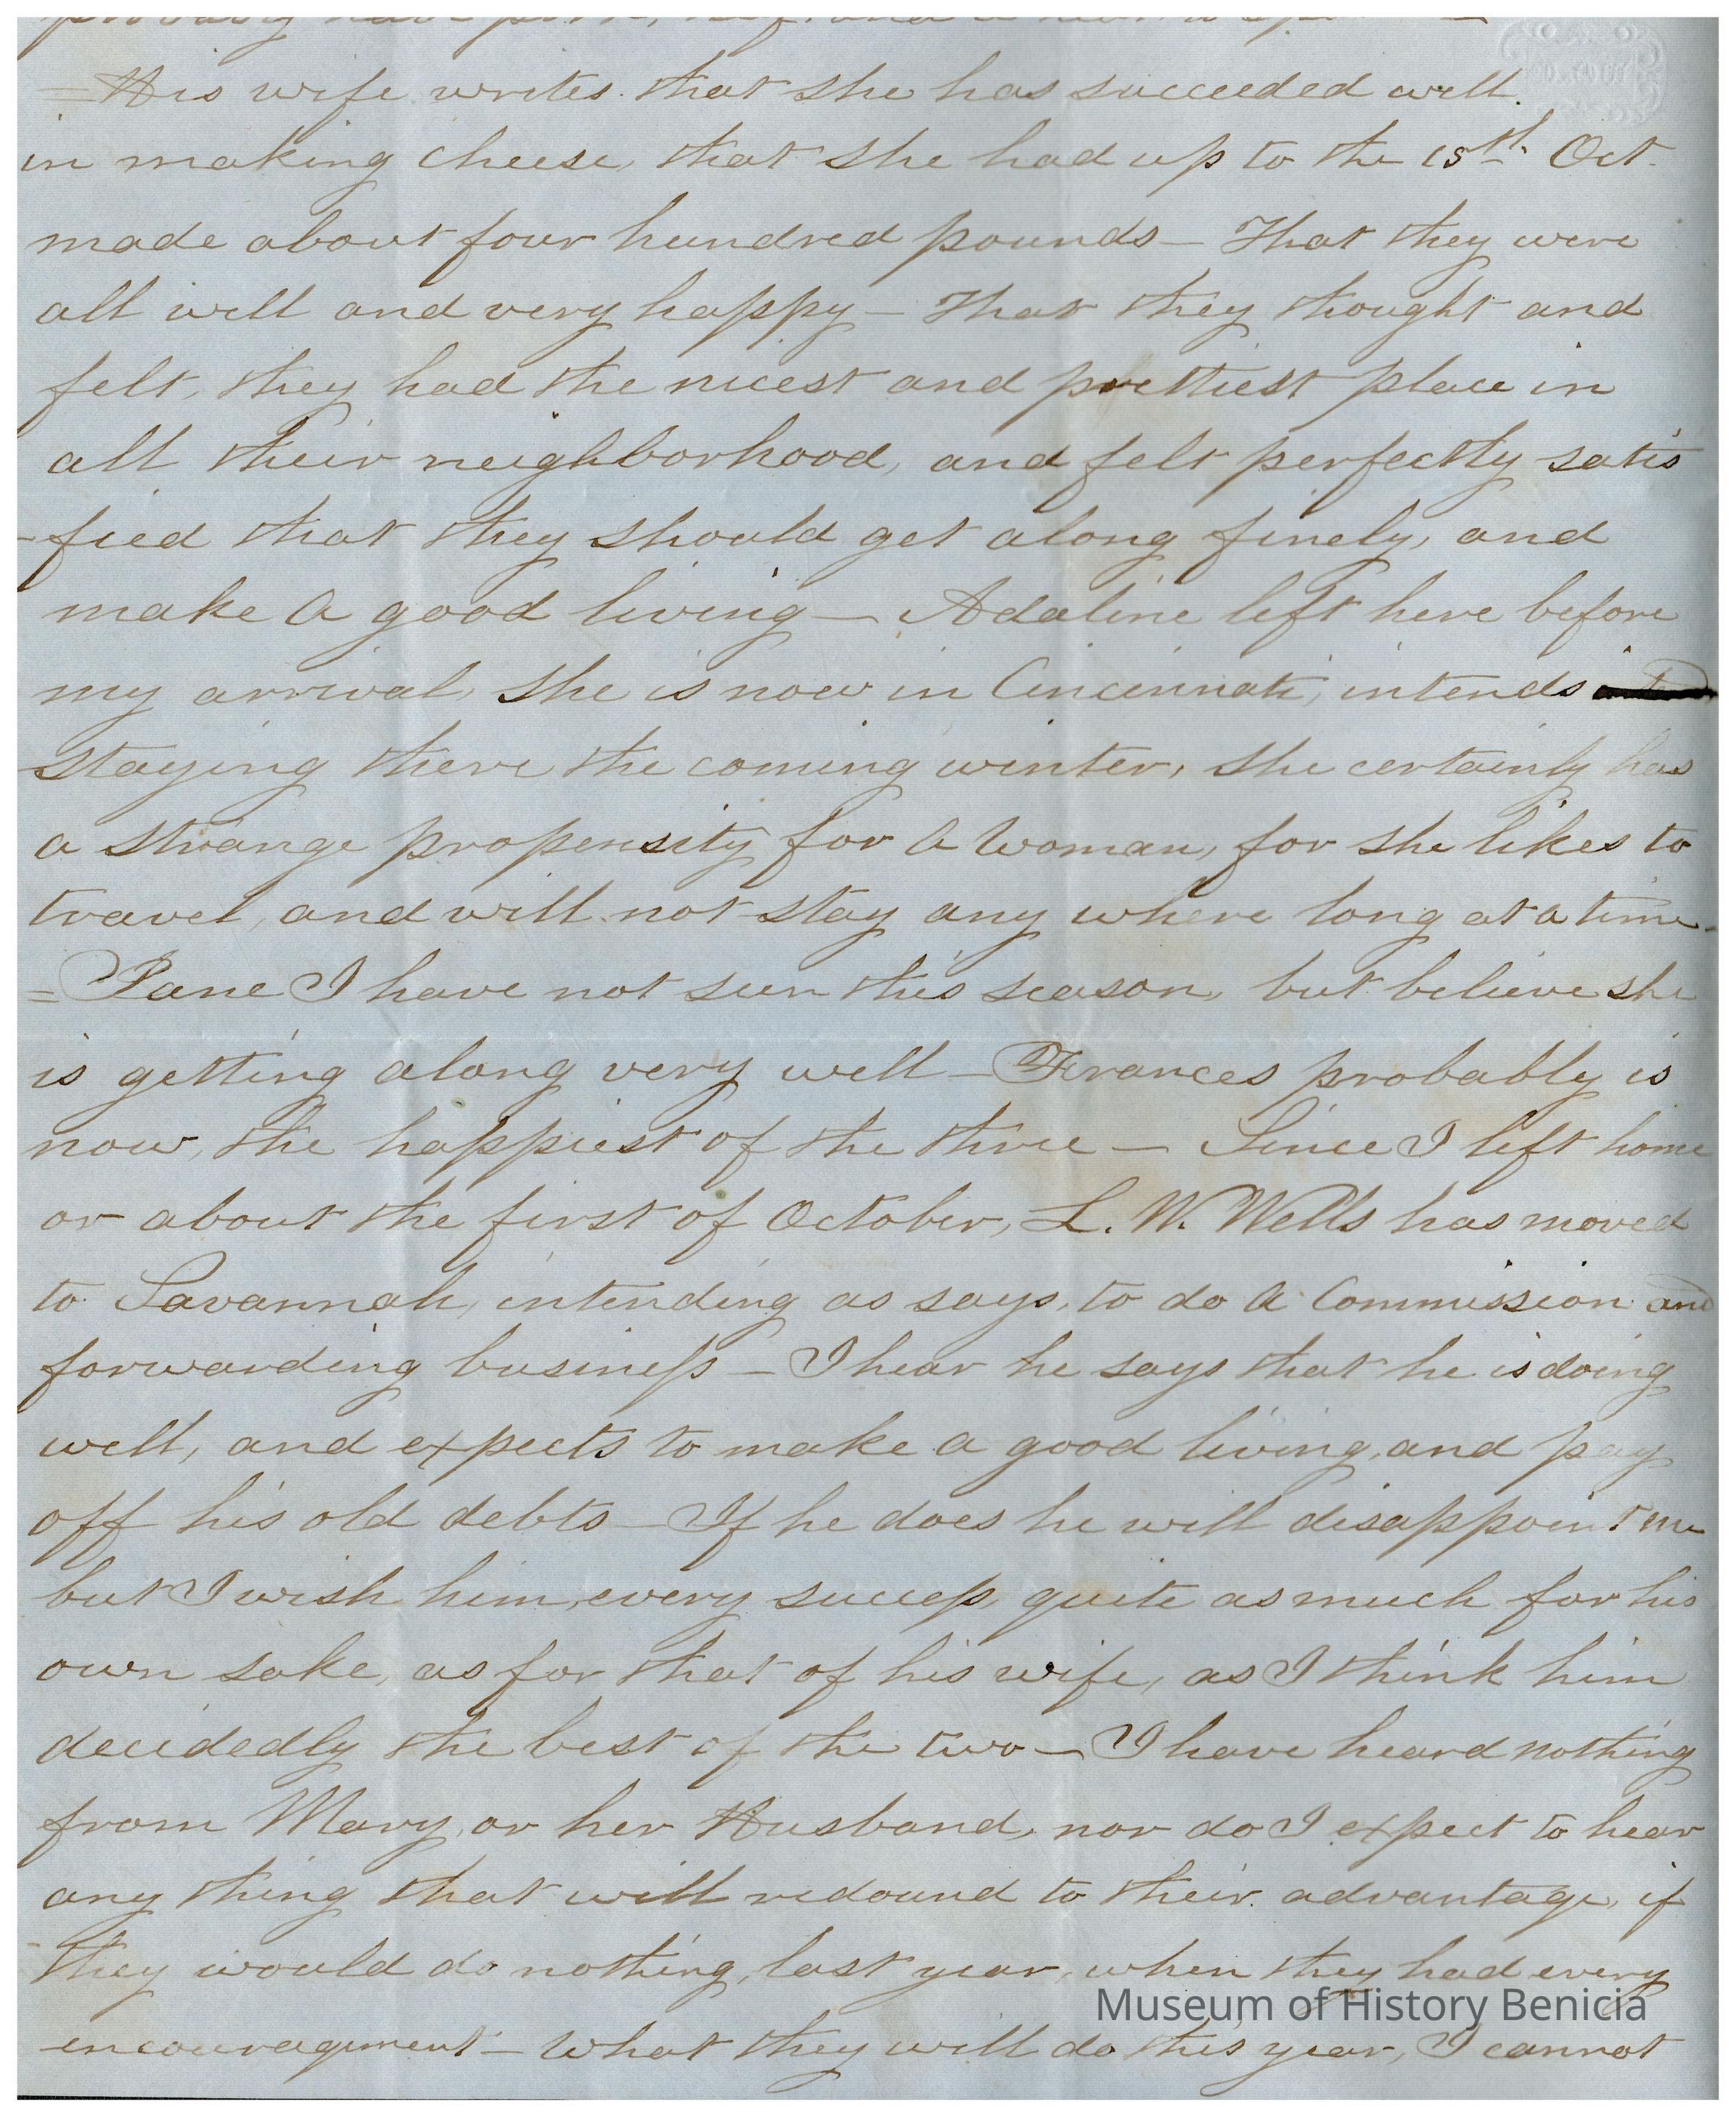 probably have pork, 
= His wife writes that she has succeeded well
in making cheese, that she had up to the 15th Oct.
made about four hundred pounds — That they were
all well and very happy — That they thought and
felt, they had the nicest and prettiest place in
all their neighborhood, and felt perfectly satis
-fied that they should get along finely, and
make a good living — Adaline left here before
my arrival, she is now in Cincinnati, intends
staying there the coming winter, she certainly has
a strange propensity for a woman, for she likes to
travel, and will not stay any where long at a time —
= Jane I have not seen this season, but believe she
is getting along very well — Frances probably is
now, the happiest of the three — Since I left home
or about the first of October, L. W. Wells has moved
to Savannah, intending as says, to do a Commission and
forwarding business — I hear he says that he is doing
well, and expects to make a good living, and pay
off his old debts — If he does he will disappoint me
but I wish him, every success, quite as much for his
own sake, as for that of his wife, as I think him
decidedly the best of the two — I have heard nothing
from Mary, or her Husband, nor do I expect to hear
any thing that will redound to their advantage, if
they would do nothing, last year, when they had every
encouragement — What they will do this year, I cannot
Museum of History Benicia